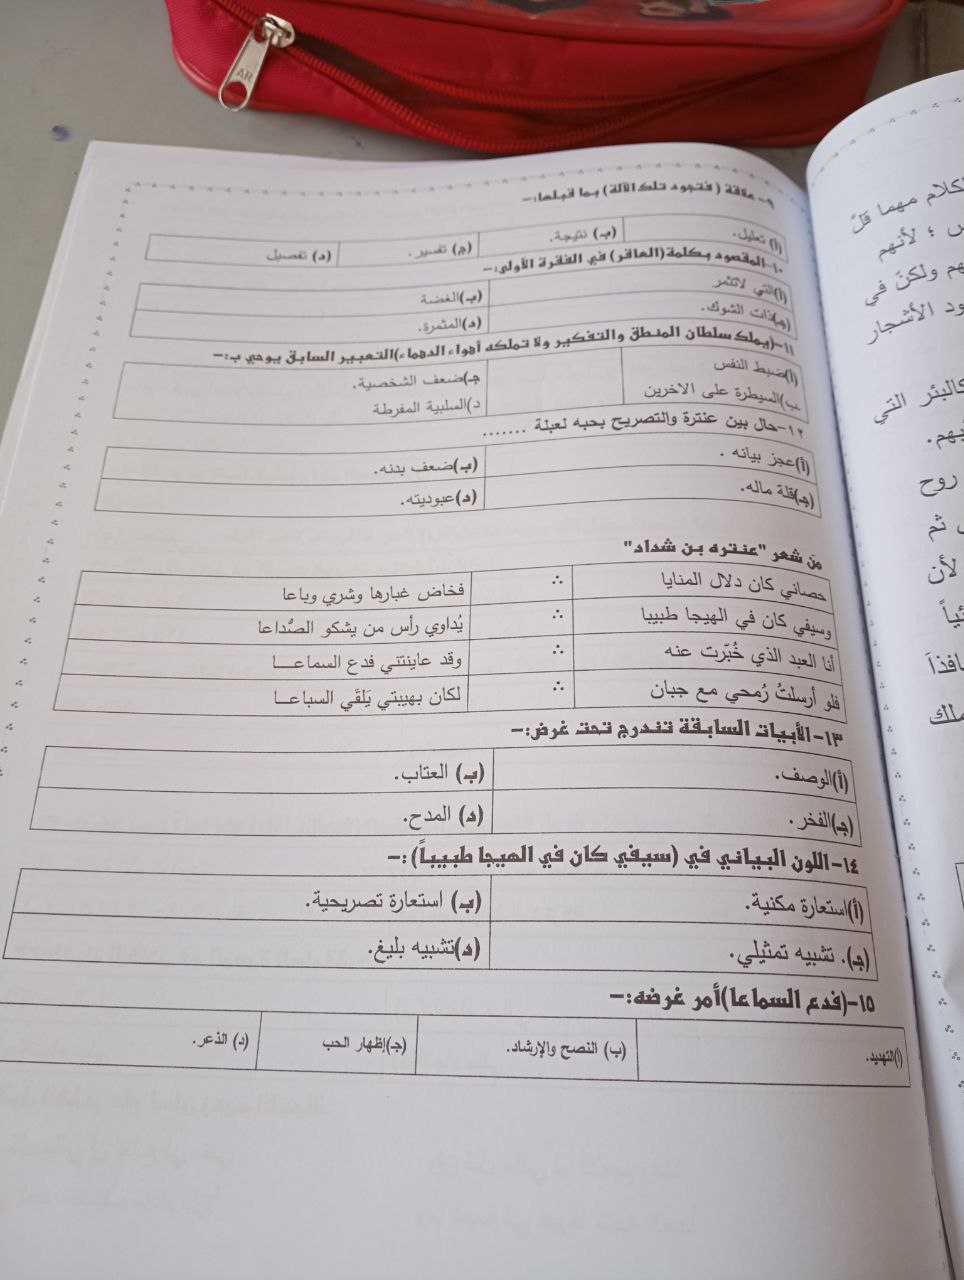 ٩- علاقة ( فتجود تلك الآلة) بما قبلها:-
(أ) تعليل. (ب) نتيجة. (ج) تفسير. (د) تفصيل
١٠-المقصود بكلمة(العاقر) في الفقرة الأولى:-
(أ)التي لاتثمر (ب)الغضة
(ج)ذات الشوك. (د)المثمرة.
١١-(يملك سلطان المنطق والتفكير ولا تملكه أهواء الدهماء)التعبير السابق يوحي ب:-
(أ)ضبط النفس ج)ضعف الشخصية.
ب)السيطرة على الاخرين د)السلبية المفرطة
١٢-حال بين عنترة والتصريح بحبه لعبلة .......
(أ)عجز بيانه . (ب)ضعف بدنه.
(ج)قلة ماله. (د)عبوديته.
من شعر "عنتره بن شداد"
حصاني كان دلال المنايا ∴ فخاض غبارها وشري وباعا
وسيفي كان في الهيجا طبيبا ∴ يُداوي رأس من يشكو الصُّداعا
أنا العبد الذي خُبّرت عنه ∴ وقد عاينتني فدع السماعـــا
فلو أرسلتُ رُمحي مع جبان ∴ لكان بهيبتي يَلقَي السباعـــا
١٣-الأبيات السابقة تندرج تحت غرض:-
(أ)الوصف. (ب) العتاب.
(ج)الفخر. (د) المدح.
١٤-اللون البياني في (سيفي كان في الهيجا طبيباً) :-
(أ)استعارة مكنية. (ب) استعارة تصريحية.
(ج). تشبيه تمثيلي. (د)تشبيه بليغ.
١٥-(فدع السماعا)أمر غرضه:-
(أ)التهديد. (ب) النصح والإرشاد. (ج)إظهار الحب (د) الذعر.
الكلام مهما قلّ
س ؛ لأنهم
هم ولكنّ في
ود الأشجار
كالبئر التي
روح
ثم
لأن
AR